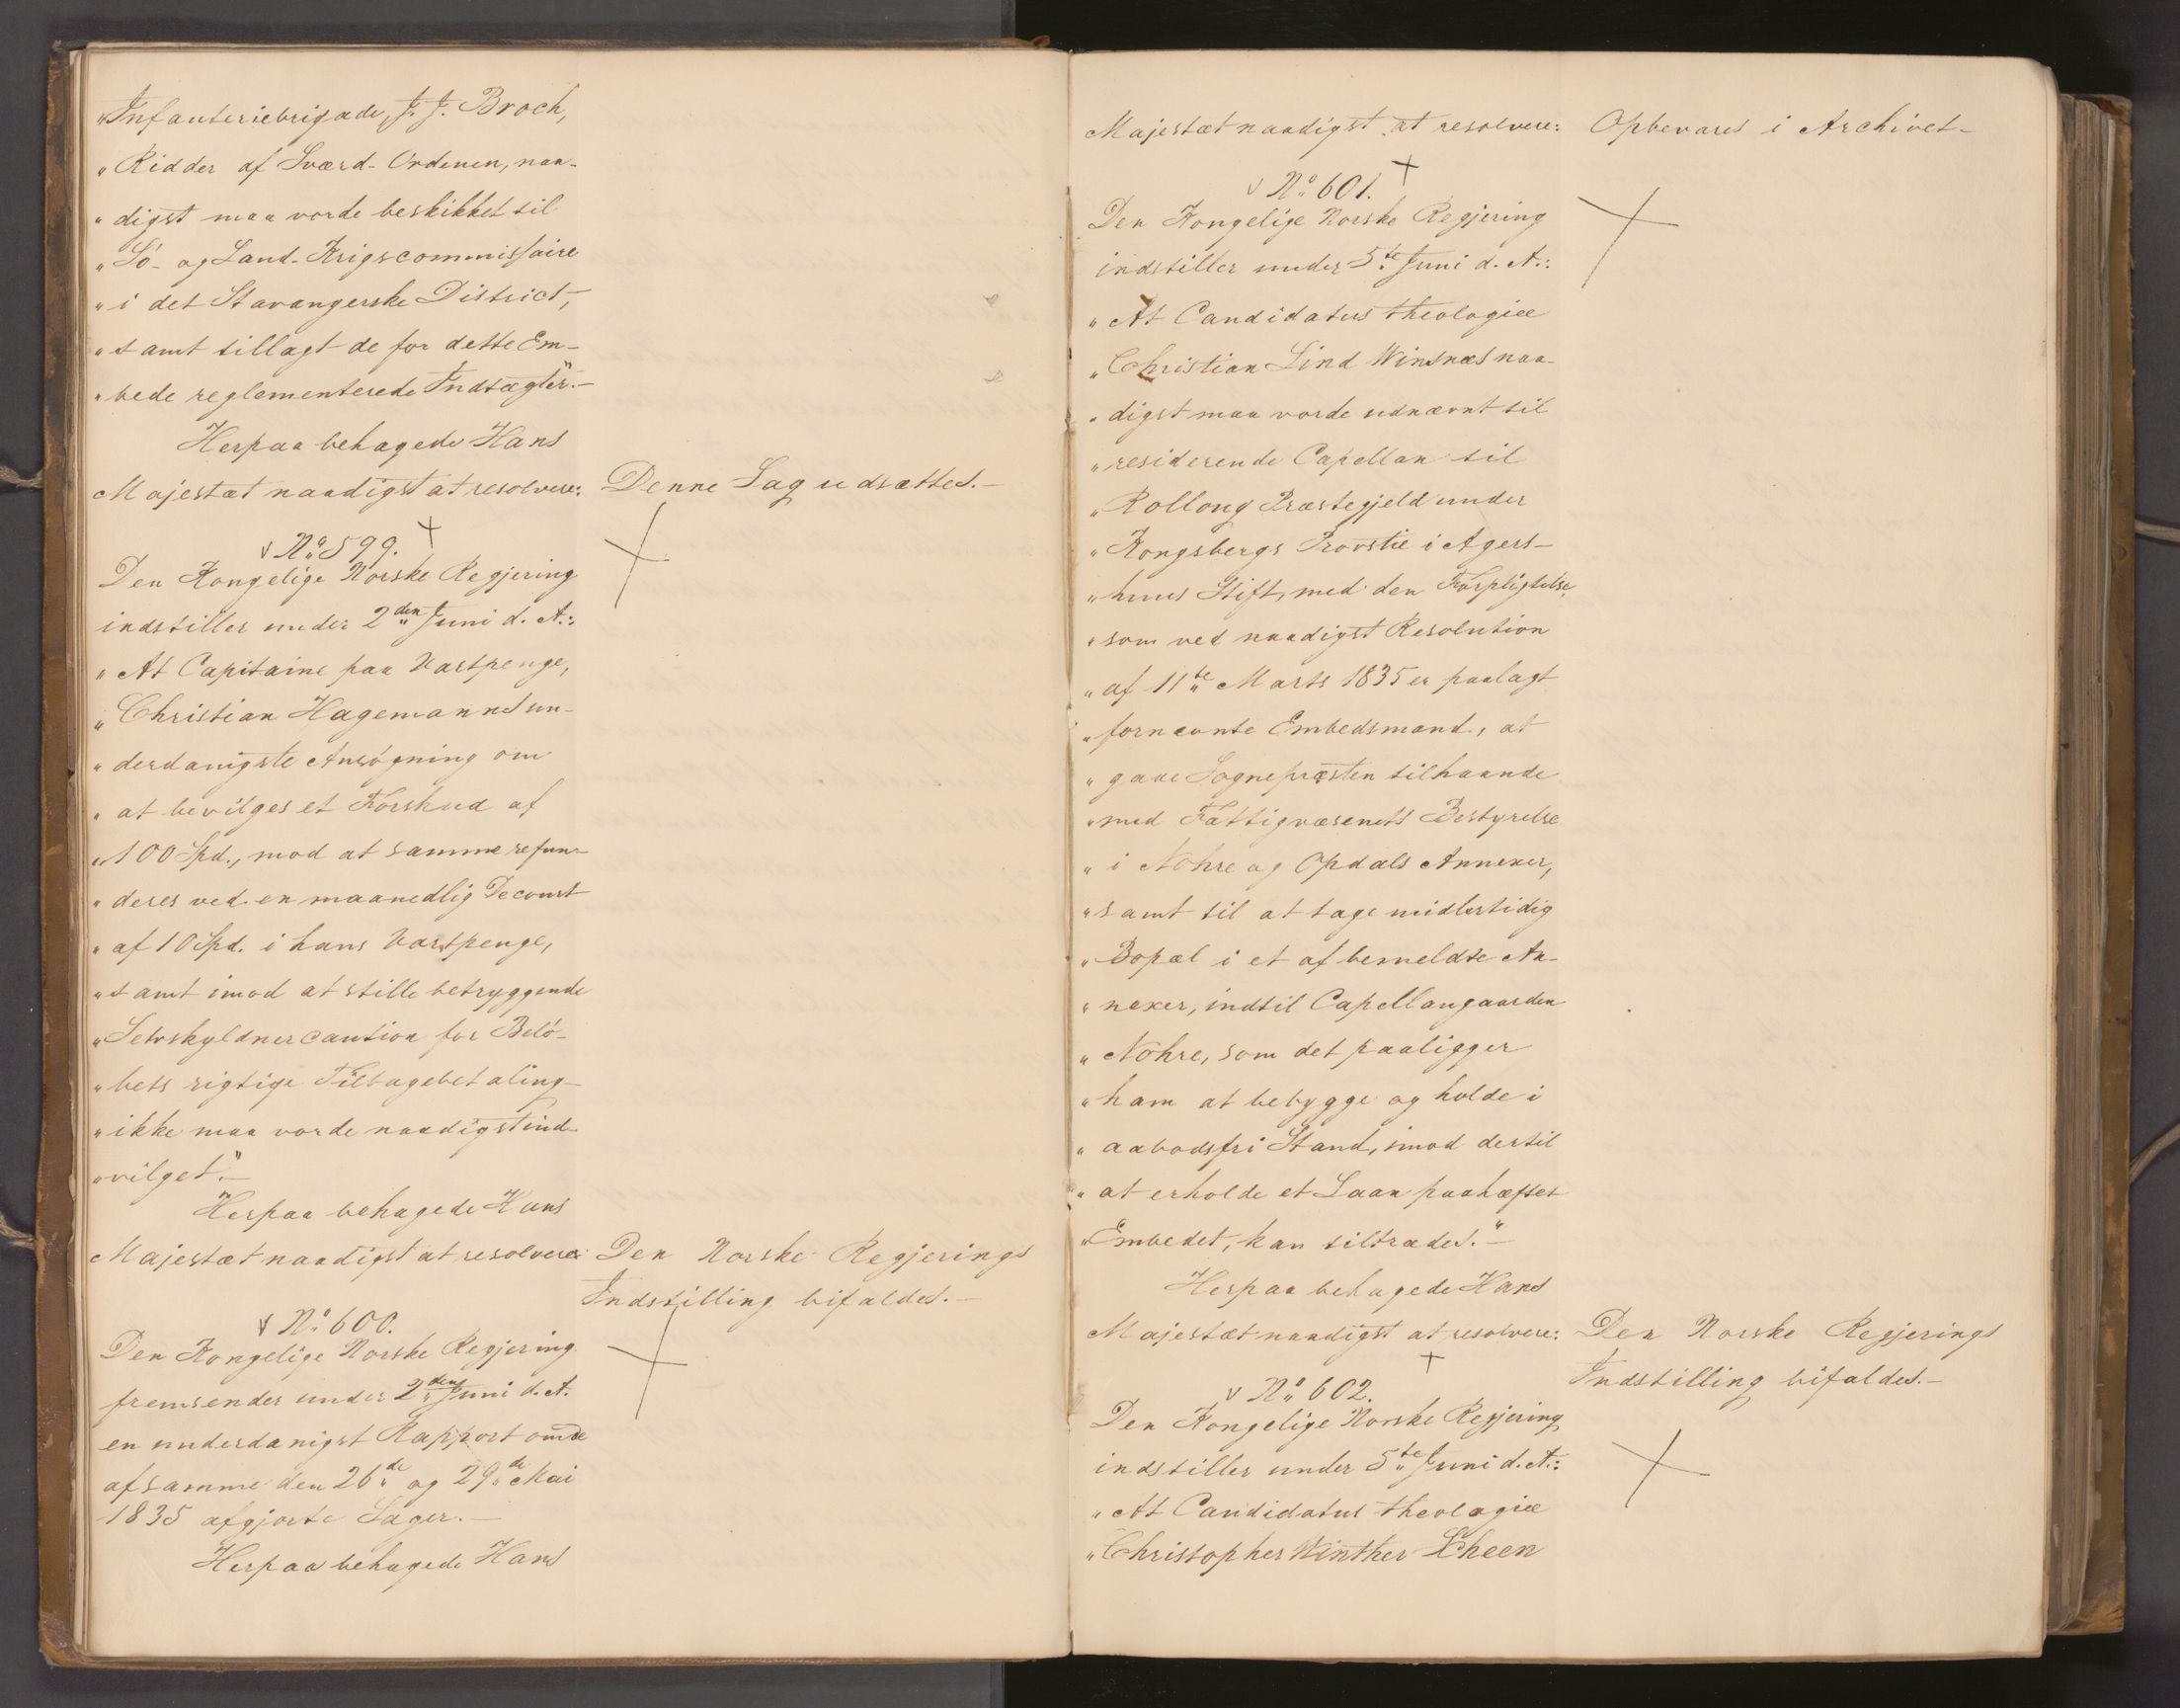 „Infanteriebrigade, J. J. Broch,
„Ridder af Sværd-Ordenen, naa-
„digst maa vorde beskikket til
„Sö- og Land-Krigscommissaire
„i det Stavangerske District,
„samt tillagt de for dette Em-
„bede reglementerede Indtægter".-
Herpaa behagede Hans
Majestæt naadigst at resolvere: Denne Sag udsættes.-
No 599.
Den Kongelige Norske Regjering
indstiller under 2den Juni d. A.:
„At Capitaine paa Vartpenge,
„Christian Hagemanns un-
„derdanigste Ansögning om
„at bevilges et Forskud af
„100 Spd., mod at samme refun-
„deres ved en maanedlig Decourt
„af 10 Spd. i hans Vartpenge,
„samt imod at stille betryggende
„Selvskyldnercaution for Belö-
„bets rigtige Tilbagebetaling
„ikke maa vorde naadigst ind-
„vilget".-
Herpaa behagede Hans
Majestæt naadigst at resolvere: Den Norske Regjerings
Indstilling bifaldes.-
No 600.
Den Kongelige Norske Regjering
fremsender under 2den Juni d. A.
en underdanigst Rapport om de
af samme den 26de og 29de Mai
1835 afgjorte Sager.-
Herpaa behagede Hans
Majestæt naadigst at resolvere: Opbevares i Archivet-
No 601.
Den Kongelige Norske Regjering
indstiller under 5te Juni d. A.:
„At Candidatus theologiæ
„Christian Lind Winsnæs naa-
„digst maa vorde udnævnt til
„residerende Capellan til
„Rollong Præstegjeld under
„Kongsbergs Provstie i Agers-
„huus Stift, med den Forpligtelse,
„som ved naadigst Resolution
„af 11te Marts 1835 er paalagt
„fornævnte Embedsmand, at
„gaae Sognepræsten tilhaande
„med Fattigvæsenets Bestyrelse
„i Nohre og Opdals Annexer,
„samt til at tage midlertidig
„Bopæl i et af bemeldte An-
„nexer, indtil Capellangaarden
„Nohre, som det paaligger
„ham at bebygge og holde i
„aabodsfri Stand, imod dertil
„at erholde et Laan paahæftet
„Embedet, kan tiltrædes."-
Herpaa behagede Hans
Majestæt naadigst at resolvere: Den Norske Regjerings
Indstilling bifaldes.-
No 602.
Den Kongelige Norske Regjering
indstiller under 5te Juni d. A.:
„At Candidatus theologiæ
„Christopher Winther Scheen